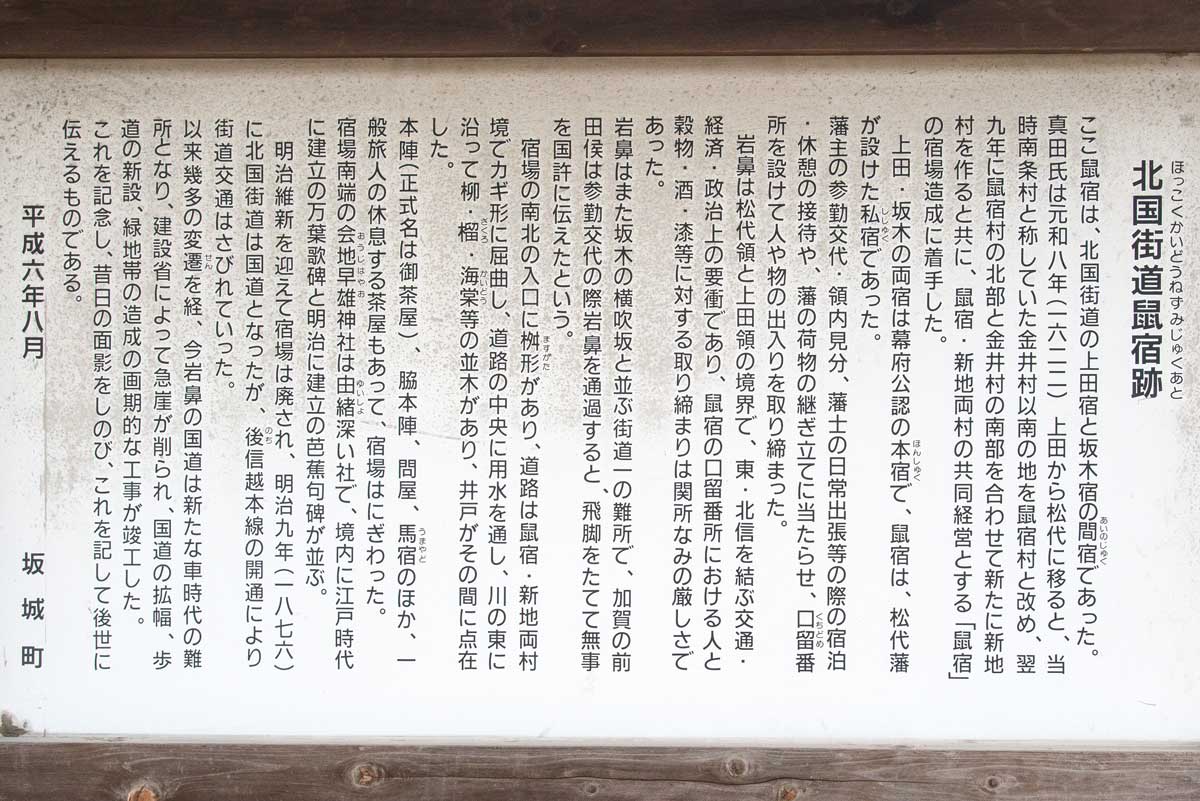 ほっこくかいどうねずみじゅくあと
北国街道鼠宿跡
ここ鼠宿は、北国街道の上田宿と坂木宿の間宿であった。
あいのじゅく
真田氏は元和八年(一六二二)上田から松代に移ると、当
時南条村と称していた金井村以南の地を鼠宿村と改め、翌
九年に鼠宿村の北部と金井村の南部を合わせて新たに新地
村を作ると共に、鼠宿・新地両村の共同経営とする「鼠宿」
の宿場造成に着手した。
上田・坂木の両宿は幕府公認の本宿で、鼠宿は、松代藩
ほんしゅく
が設けた私宿であった。
ししゅく
藩主の参勤交代・領内見分、藩士の日常出張等の際の宿泊
・休憩の接待や、藩の荷物の継ぎ立てに当たらせ、口留番
くちどめ
所を設けて人や物の出入りを取り締まった。
岩鼻は松代領と上田領の境界で、東・北信を結ぶ交通・
経済・政治上の要衝であり、鼠宿の口留番所における人と
穀物・酒・漆等に対する取り締まりは関所なみの厳しさで
あった。
岩鼻はまた坂木の横吹坂と並ぶ街道一の難所で、加賀の前
田侯は参勤交代の際岩鼻を通過すると、飛脚をたてて無事
を国許に伝えたという。
宿場の南北の入口に桝形があり、道路は鼠宿・新地両村
ますがた
境でカギ形に屈曲し、道路の中央に用水を通し、川の東に
沿って柳・榴・海棠等の並木があり、井戸がその間に点在
ざくろ
かいどう
した。
本陣(正式名は御茶屋)、脇本陣、問屋、馬宿のほか、一
うまやど
般旅人の休息する茶屋もあって、宿場はにぎわった。
宿場南端の会地早雄神社は由緒深い社で、境内に江戸時代
おうじはやお
ゆいしょ
に建立の万葉歌碑と明治に建立の芭蕉句碑が並ぶ。
明治維新を迎えて宿場は廃され、明治九年(一八七六)
に北国街道は国道となったが、後信越本線の開通により
のち
街道交通はさびれていった。
以来幾多の変遷を経、今岩鼻の国道は新たな車時代の難
せん
所となり、建設省によって急崖が削られ、国道の拡幅、歩
道の新設、緑地帯の造成の画期的な工事が竣工した。
これを記念し、昔日の面影をしのび、これを記して後世に
伝えるものである。
平成六年八月 坂城町